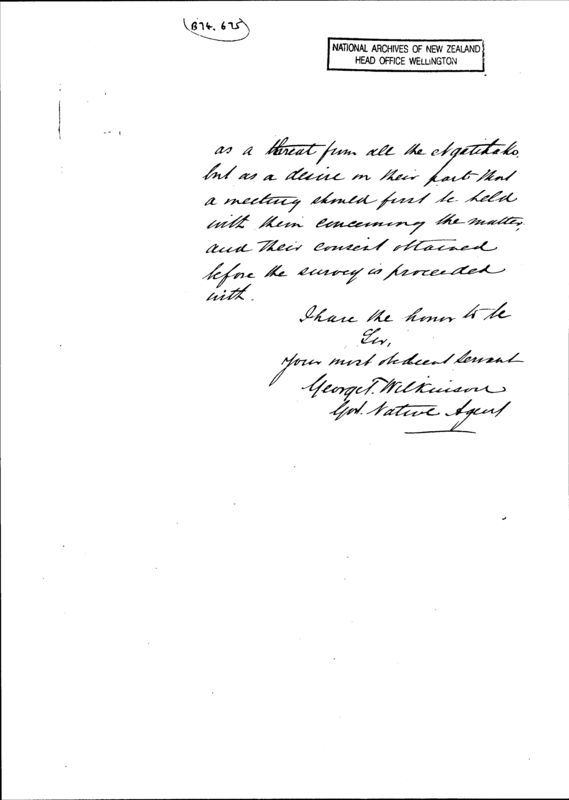 (B74. 675)
NATIONAL ARCHIVES OF NEW ZEALAND
HEAD OFFICE WELLINGTON
as a threat from all the
but as a desire on their part that
a meeting should first be held
with them concerning the matter,
and their consent obtained
before the survey is proceeded
with.
I have the honor to be
Sir,
Your most obedient Servant
George T. Wilkinson
Gov. Native Agent